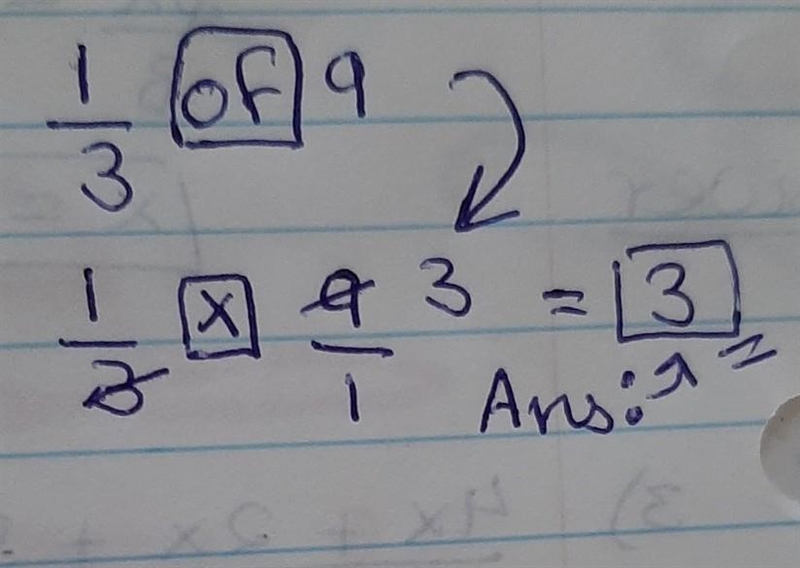 1/3 of 9
1/3 x 9/1 3 = 3
Ans: